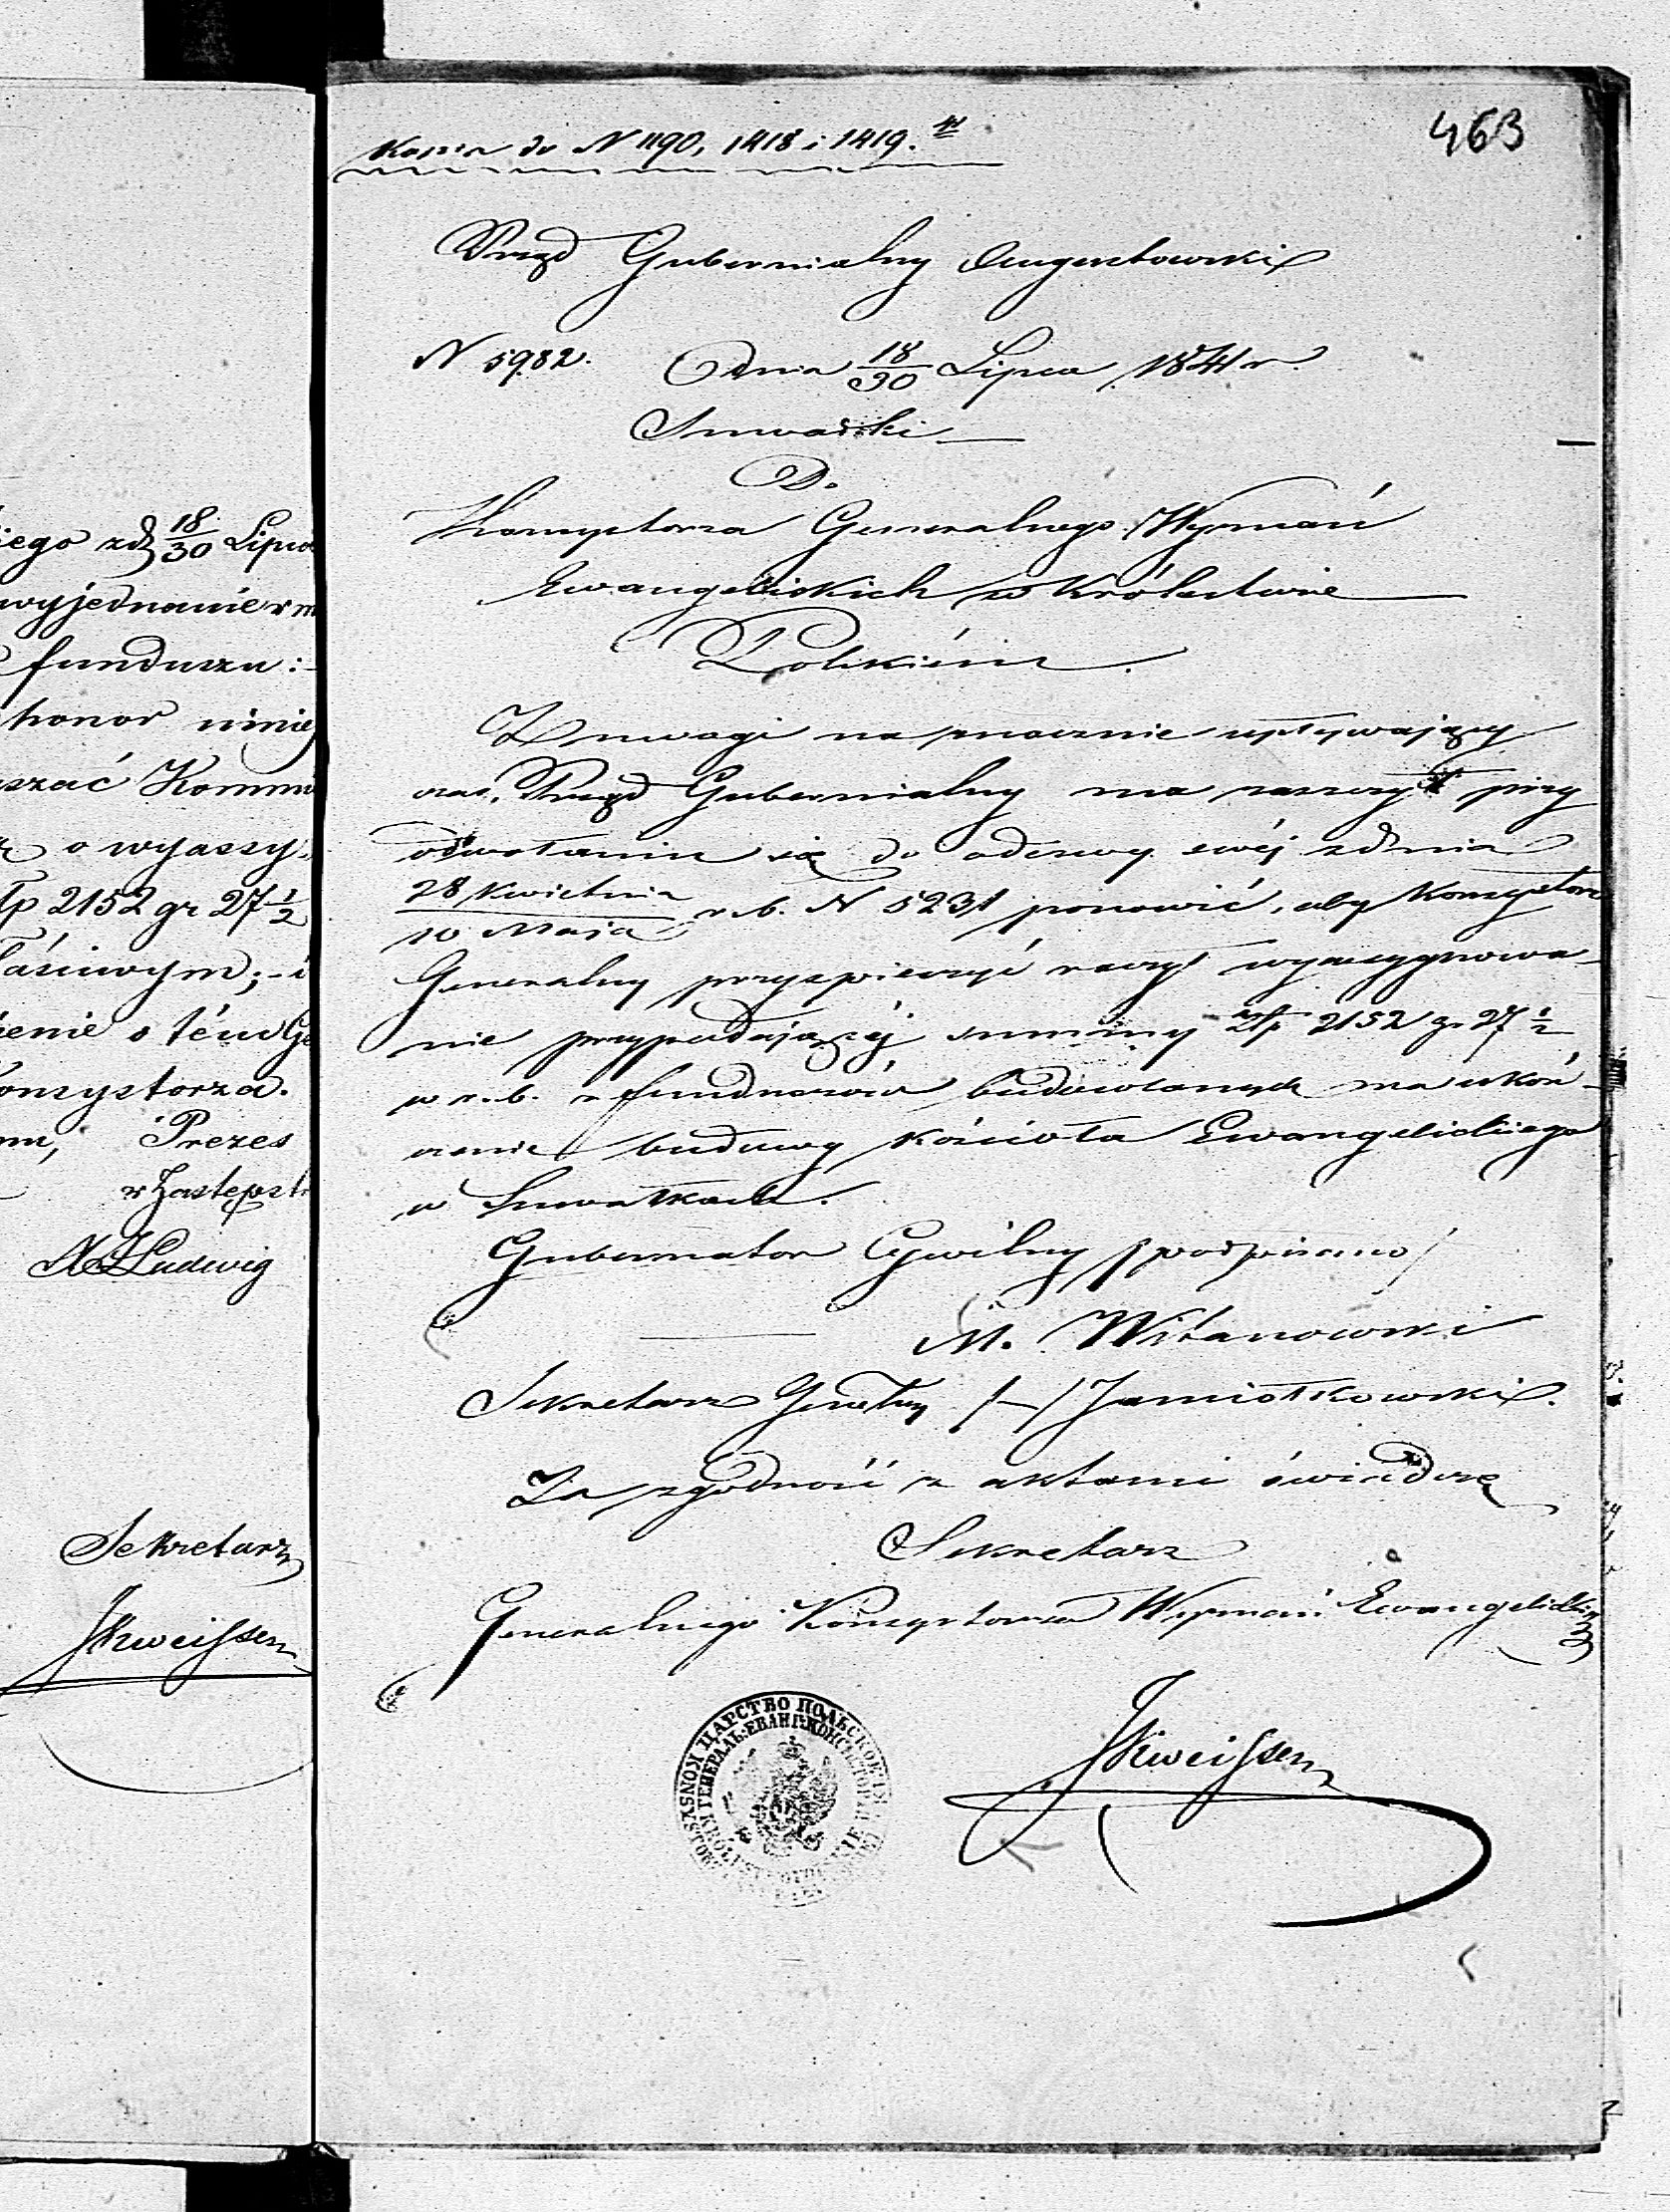 iego zd 18/30 Lipca
wyjednanie w m
funduszu:
honor niniej
szać Kommi
o wyassy-
łp 2152 gr 27 1/2
łaściwym; - i
ienie o tém Ge
onsystorza.
Prezes
w Zastępst
Ludwig
Sekretarz
JKweissen
463
Kopia do N 1190, 1418 i 1419.
Rząd Gubernialny Augustowski
N 5982. Dnia 18/30 Lipca 1841 r.
Suwałki
Do
Konsystorza Generalnego Wyznań
Ewangelickich w Królestwie
Polskiém.
Z uwagi na znacznie upływający
czas, Rząd Gubernialny ma zaszczyt przy
odwołaniu się do odezwy swéj z dnia
28 Kwietnia/10 Maja r. b. N 5231 ponowić, aby Konsystorz
Generalny przyspieszyć raczył wyassygnowa-
nie przypadającéj summy złp 2152 gr 27 1/2
w r. b. z funduszów budowlanych na ukoń-
czenie budowy Kościoła Ewangelickiego
w Suwałkach.
Gubernator Cywilny /podpisano/
M. Witanowski
Sekretarz Gnralny /-/ Jamiołkowski.
Za zgodność z aktami świadczę
Sekretarz
Generalnego Konsystorza Wyznań Ewangelickich
ЦАРСТВО ПОЛЬСКОЕ
ГЕНЕРАЛЬ: ЕВАНГ: КОНСИСТОР
JKweissen